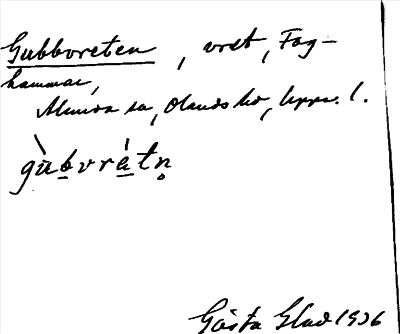 Gubbvreten, vret, Fag-
hammar,
Almunge sn, Olands hd, Uppl. l.
gu̠b̠vrá̠tn̥
Gösta Glad 1936